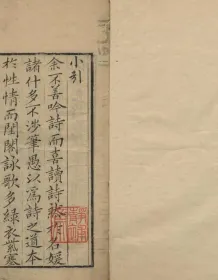 小引
余不善吟詩而喜讀詩然於名媛
諸什多不涉筆愚以為詩之道本
於性情而閨閣詠歌多綠衣黃裏